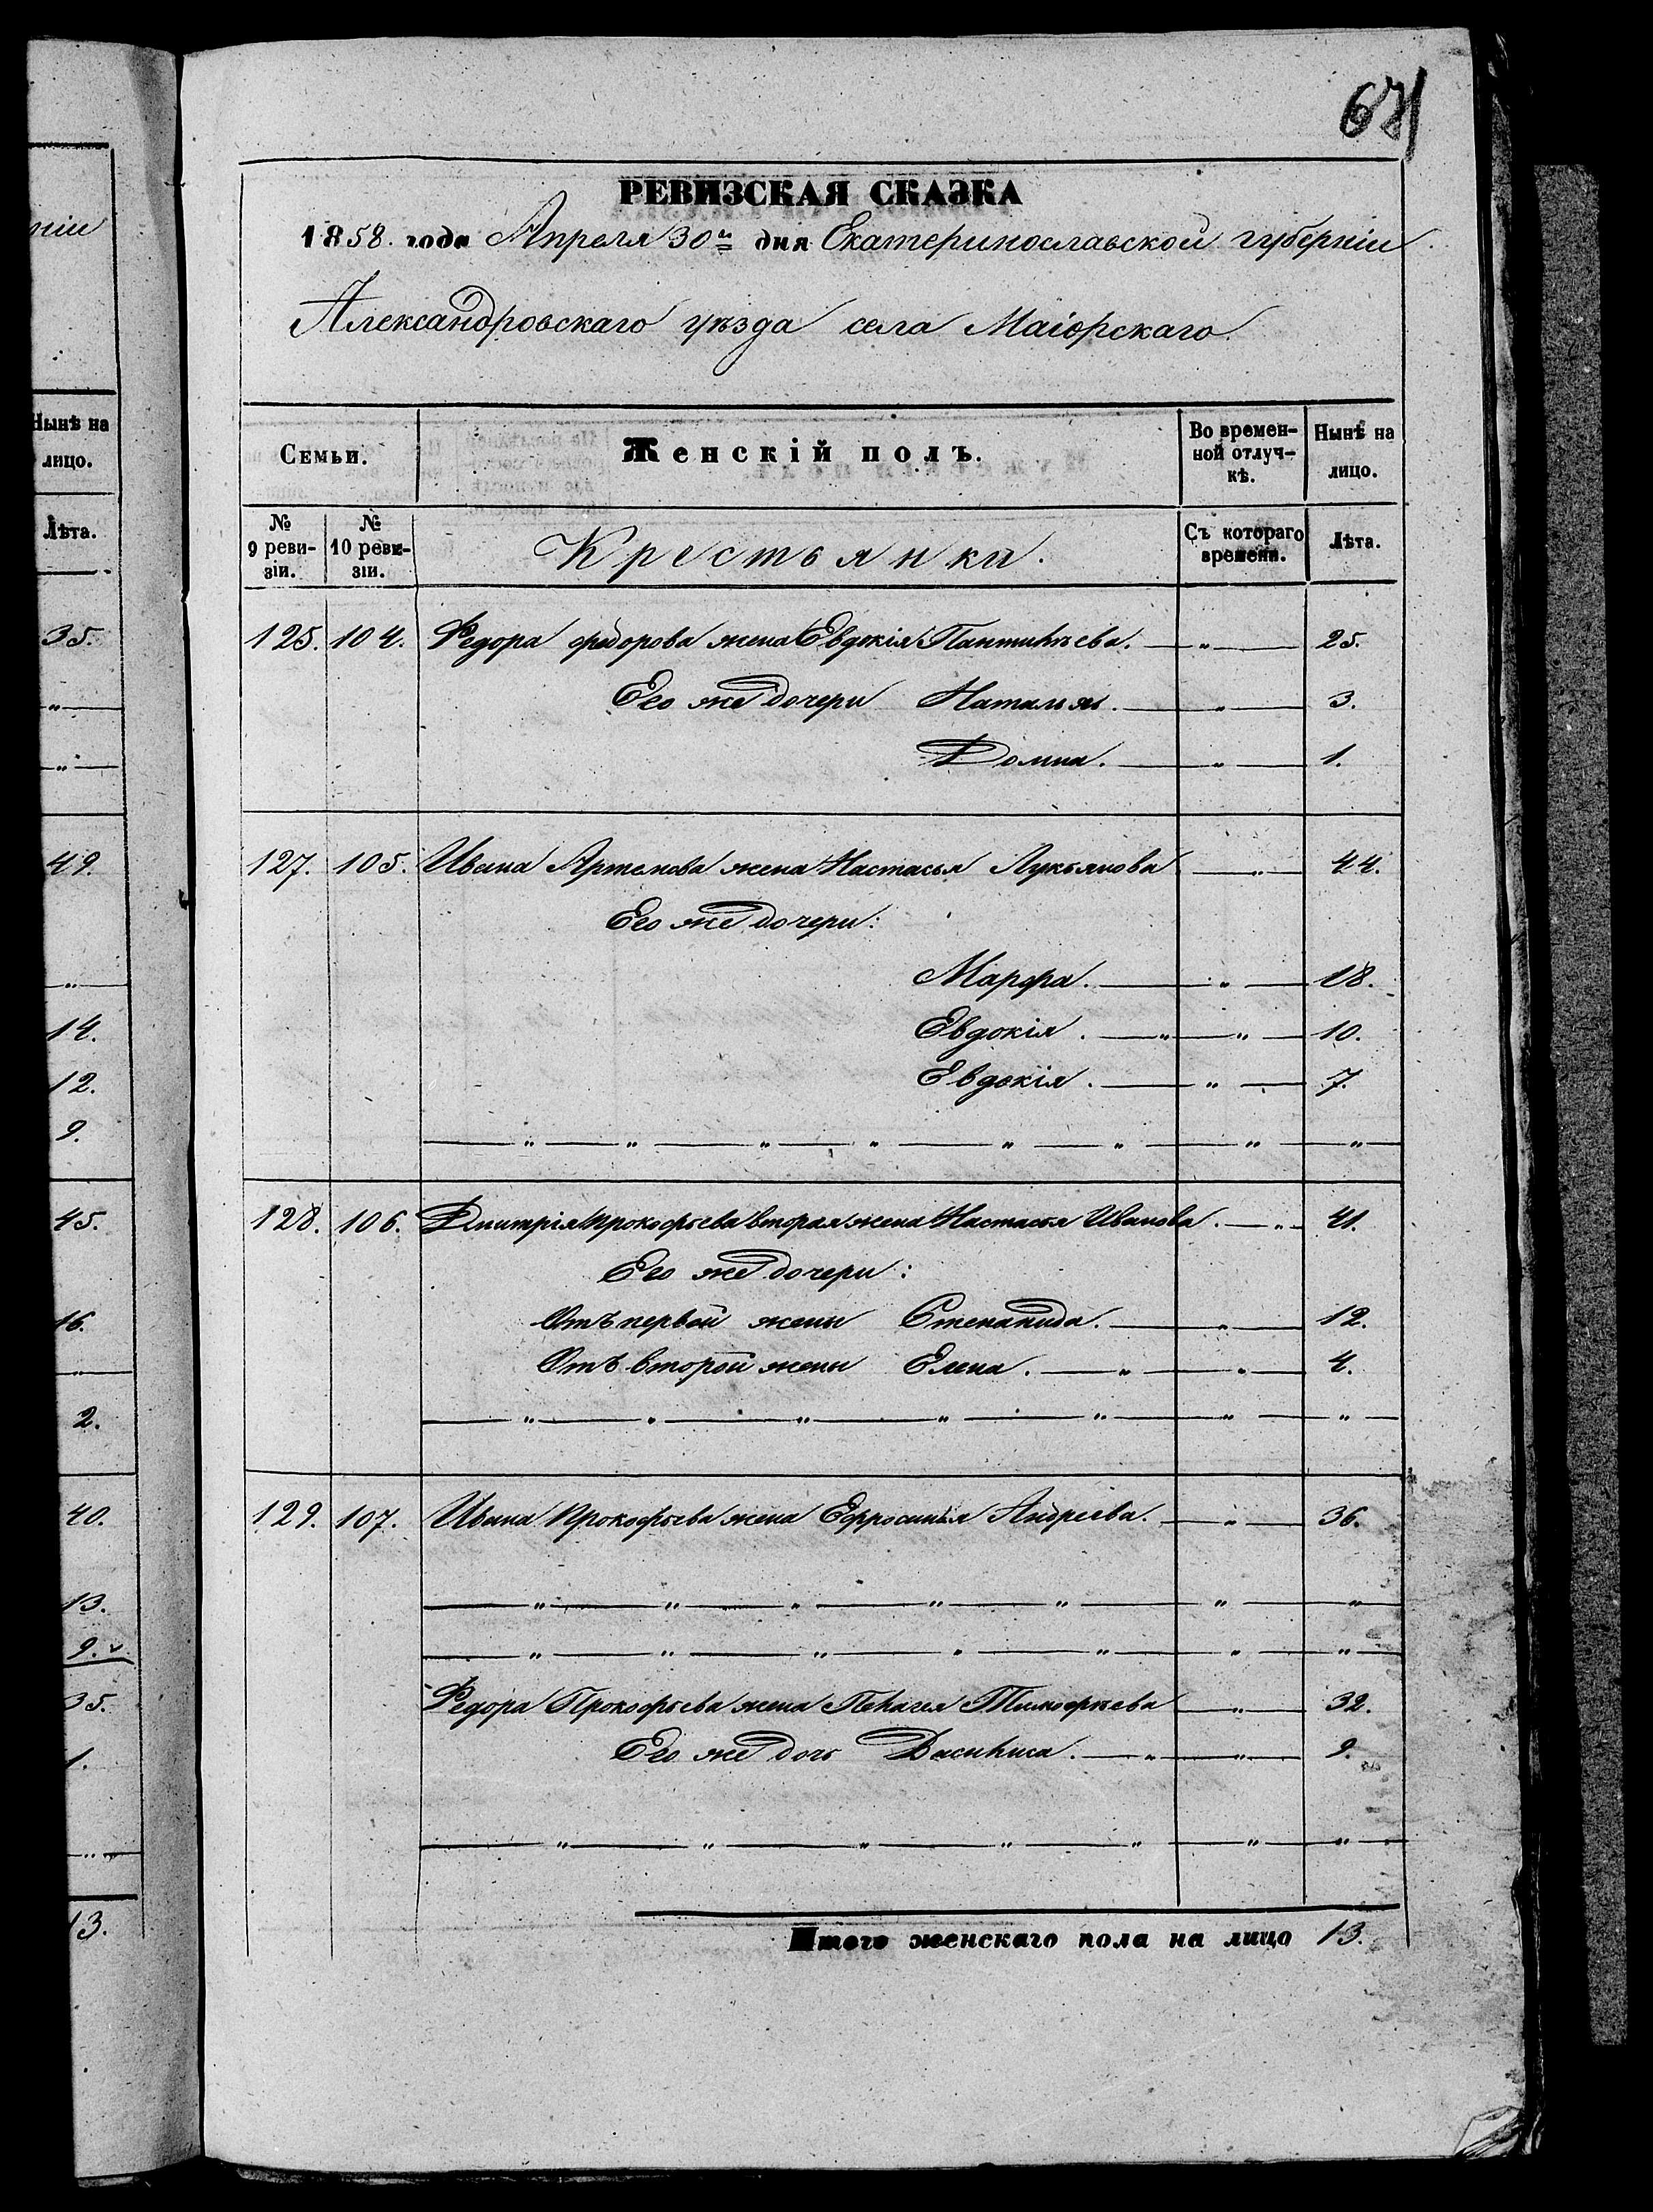 ніи
Нынѣ на
лицо.
Лѣта.
35.
„
„
49.
„
14.
12.
9.
45.
16.
„
2.
40.
13.
9. v
35.
1.
„
13.
РЕВИЗСКАЯ СКАЗКА
1858. года Апреля 30го дня Екатеринославской губерніи
Александровскаго уѣзда села Маіорскаго.
Семьи. Женскій полъ. Во времен- Нынѣ на
ной отлуч- лицо.
кѣ.
№ № Крестьянки. Съ котораго Лѣта.
9 реви- 10 реви- времени.
зіи. зіи.
125. 104. Федора Федорова жена Евдокія Пантилѣева. — „ — 25.
Его же дочери Наталья. — „ — 3.
Домна. — „ — 1.
127. 105. Ивана Артемова жена Настасья Лукьянова — „ — 44.
Его же дочери:
Марфа. — „ — 18.
Евдокія. — „ — „ — 10.
Евдокія. — „ — 7.
— „ — „ — „ — „ — „ — „ — „ — „ —
128. 106. Дмитрія Прокофьева вторая жена Настасья Иванова. — „ — 41.
Его же дочери:
Отъ первой жены Степанида. — „ — 12.
Отъ второй жены Елена. — „ — „ — 4.
— „ — „ — „ — „ — „ — „ — „ —
129. 107. Ивана Прокофьева жена Ефросинья Андреева. — „ — 36.
— „ — „ — „ — „ — „ — „ — „ —
— „ — „ — „ — „ — „ — „ — „ —
Федора Прокофьева жена Пелагея Тимофѣева — „ — 32.
Его же дочь Василиса. — „ — „ — 9.
— „ — „ — „ — „ — „ — „ — „ —
Итого женскаго пола на лицо 13.